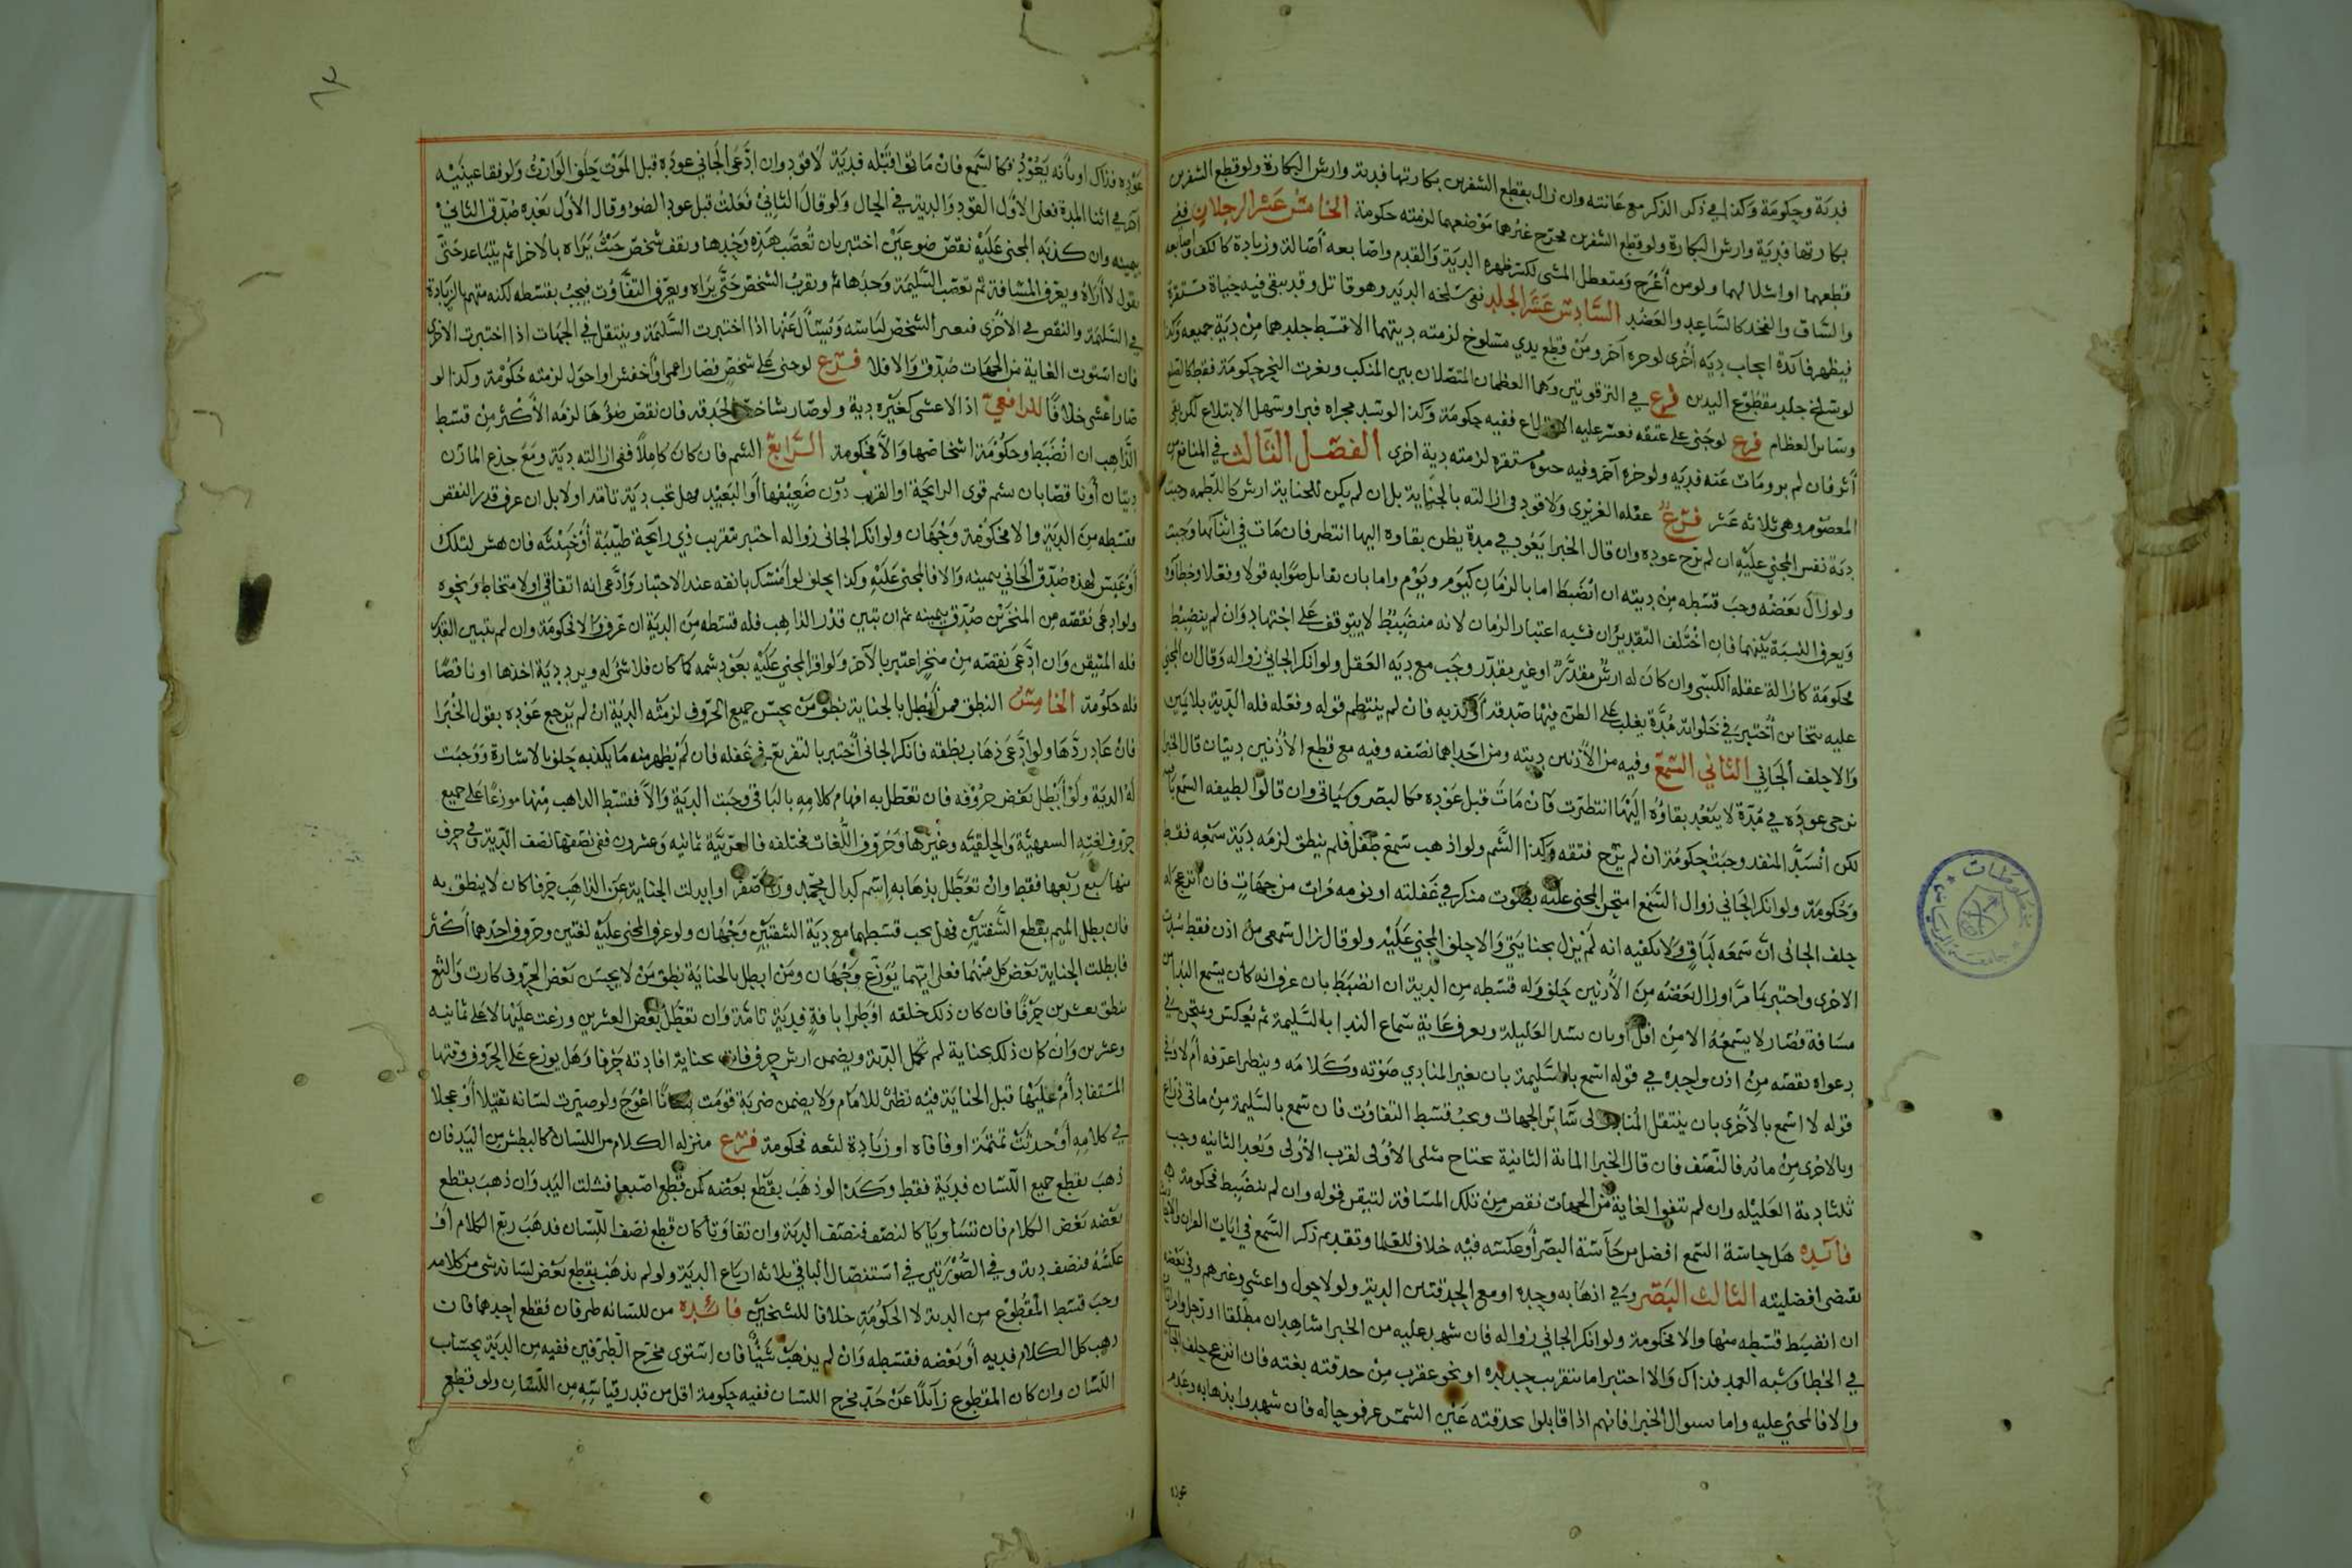 فدية وحكومة وكذا في ذكر الذكر مع عانته وان زال بقطع الشفرين بكارتها فدية وارش البكارة ولو قطع الشفرين
بكارتها فدية وارش البكارة ولو قطع الشفرين مخرج غيرها موضعهما لزمته حكومة الخامس عشر الرجلان ففي
قطعهما او اشلالهما ولو من أعرج ومتعطل المشي لكسر ظهره الدية والقدم واصابعه أصالة وزيادة كالكف واصابعه
والساق والفخذ كالساعد والعضد السادس عشر الجلد ففي سلخه الدية وهو قاتل وقد يبقى فيه حياة مستقرة
فيظهر فائدة ايجاب دية أخرى لو حزه آخر ومن قطع يدي مسلوخ لزمته ديتهما الا قسط جلدهما من دية جميعه وكذا
لو سلخ جلد مقطوع اليدين فرع في الترقوتين وهما العظمان المتصلان بين المنكب وثغرت النحر حكومة فقط كالضلع
وسائر العظام فرع لو جنى على عنقه فعسر عليه الابتلاع ففيه حكومة وكذا لو سد مجراه فبرا وسهل الابتلاع لكن بقي
أثر فان لم يبر ومات عنه فدية ولو حزه آخر وفيه حيوة مستقرة لزمته دية اخرى الفصل الثالث في المنافع من
المعصوم وهي ثلاثة عشر فرع عقله الغريزي ولا قود في ازالته بالجناية بل ان لم يكن للجناية ارش كاللطمة وجبت
دية نفس المجني عليه ان لم يرج عوده وان قال الخبرا يعود في مدة يظن بقاوه اليها انتظر فان مات في اثنائها وجبت
ولو زال بعضه وجب قسطه من ديته ان انضبط اما بالزمان كيوم ويوم واما بان يقابل صوابه قولا وفعلا وخطاؤه
ويعرف النسبة بينهما فان اختلف التقديران فشبه اعتبار الزمان لانه منضبط لا يتوقف على اجتهاد وان لم ينضبط
فحكومة كازالة عقله الكسبي وان كان له ارش مقدر او غير مقدر وجب مع دية العقل ولو انكر الجاني زواله وقال ان المجني
عليه يتخابن أختبر في خلواته مدة يغلب على الظن فيها صدقه او كذبه فان لم ينتظم قوله وفعله فله الدية بلا يمين
والا حلف الجاني الثاني السمع وفيه من الأذنين ديته ومن احداهما نصفه وفيه مع قطع الأذنين ديتان قال الخبرا
نرجى عوده في مدة لا يبعد بقاؤه اليها انتظرت فان مات قبل عوده فكالبصر وسياتي وان قالوا لطيفه السمع باق
لكن انسد المنفد وجبت حكومة ان لم يرج فتقه وكذا الشم ولو اذهب سمع طفل فلم ينطق لزمه دية سمعه فقط
وحكومة ولو انكر الجاني زوال السمع امتحن المجني عليه بصوت منكر في غفلته او نومه مرات من جهات فان انزعج له
حلف الجاني ان سمعه لباق ولا يكفيه انه لم يزل بجنايتي والا حلف المجني عليه ولو قال زال سمعي من اذن فقط سدت
الاخرى واختبر بما مر او زال بعضه من الأذنين حلف وله قسطه من الدية ان انضبط بان عرف انه كان يسمع الندا من
مسافة فصار لا يسمعه الا من اقل أو بان سد العليلة ويعرف غاية سماع الندا بالسليمة ثم يعكس ويمتحن في
دعواه نقصه من اذن واحدة في قوله اسمع بالسليمة بان يغير المنادي صوته وكلامه وينظر اعرفه ام لا وفي
قوله لا اسمع بالأخرى بان ينتقل المنادي الى سائر الجهات ويجب قسط التفاوت فان سمع بالسليمة من مائتي ذراع
وبالاخرى من مائة فالنصف فان قال الخبرا المائة الثانية تحتاج مثلي الأولى لقرب الأولى وبعد الثانية وجب
ثلثا دية العليلة وان لم تتفق الغاية من الجهات نقص من تلك المسافة لتيقن قوله وان لم ينضبط فحكومة
فائدة هل حاسة السمع افضل من حاسة البصر أو عكسه فيه خلاف للعلما وتقديم ذكر السمع في ايات القران
يقتضي افضليته الثالث البصر وفي اذهابه وحده او مع الحدقتين الدية ولو لاحول واعشى وغيرهم وفي بعضه
ان انضبط قسطه منها والا فحكومة ولو انكر الجاني زواله فان شهد عليه من الخبرا شاهدان مطلقا او رجل وامراتان
في الخطا وشبه العمد فذاك والا اختبر اما بتقريب حديدة او نحو عقرب من حدقته بغتة فان انزعج حلف الجاني
والا فالمجني عليه واما بسوال الخبرا فانهم اذا قابلوا بحدقته عين الشمس عرفو حاله فان شهدوا بذهابه وعدم
عوده
٦٣
عوده فذاك او بأنه يعود فكالسمع فان مات قبله فدية لا قود وان ادعى الجاني عوده قبل الموت حلف الوارث ولو فقا عينيه
آخر في اثنا المدة فعلى الأول القود والدية في الحال ولو قال الثاني فعلت قبل عود الضوء وقال الأول بعده صدق الثاني
بيمينه وان كذبه المجني عليه نقص ضوء عين اختبر بان تعصب هذه وحدها ويقف شخص حيث يراه بالاخرى ثم يتباعد حتى
يقول لا أراه ويعرف المسافة ثم تعصب السليمة وحدها ثم ويقرب الشخص حتى يراه ويعرف التفاوت فيجب بقسطه لكنه متهم بالزيادة
في السليمة والنقص في الأخرى فيغير الشخص لباسه ويسأل عنها اذا اختبرت السليمة وينتقل في الجهات اذا اختبرت الاخرى
فان استوت الغاية من الجهات صدق والا فلا فرع لو جنى على شخص فصار اعمى أو أخفش او احول لزمته حكومة وكذا لو
صار اعشى خلافا للرافعي اذ الاعشى كغيره دية ولو صار شاخص الحدقة فان نقص ضوءها لزمه الأكثر من قسط
الذاهب ان انضبط وحكومة اشخاصها والا فحكومة الرابع الشم فان كان كاملا ففي ازالته دية ومع جذع المارن
ديتان أو ناقصا بان يشم قوى الرايحة او القريب دون ضعيفها أو البعيد فهل تجب دية تامة او لا بل ان عرف قدر النقص
فقسطه من الدية والا فحكومة وجهان ولو انكر الجاني زواله اختبر بتقريب ذي رايحة طيبة أو خبيثة فان هش لتلك
أو عبس لهذه صدق الجاني بيمينه والا فالمجني عليه وكذا يحلف لو امتسك بانفه عند الاختبار وادعى انه اتفاقي اولا متخاط ونحوه
ولو ادعى نقصه من المنخرين صدق بيمينه ثم ان تبين قدر الذاهب فله قسطه من الدية ان عرف والا فحكومة وان لم يتبين القدر
فله المتيقن وان ادعى نقصه من منخر اعتبر بالآخر ولو اقر المجني عليه بعود شمه كما كان فلا شئ له ويرد دية اخذها او ناقصا
فله حكومة الخامس النطق فمن أبطل بالجناية نطق من يحسن جميع الحروف لزمته الدية ان لم يرجع عوده بقول الخبرا
فان عاد ردها ولو ادعى ذهاب نطقه فانكر الجاني أختبر بالتفريع في غفله فان لم يظهر منه ما يكذبه حلف بالاشارة ووجبت
له الدية ولو أبطل بعض حروفه فان تعطل به افهام كلامه بالباقي وجبت الدية والا فقسط الذاهب منها موزعا على جميع
حروف لغته السفهية والحلقية وغيرها وحروف اللغات مختلفة فالعربية ثمانية وعشرون ففي نصفها نصف الدية وفي حرف
منها سبع ربعها فقط وان تعطل بذهابه اسم كدال محمد و او ابدلت الجناية عن الذاهب حرفا كان لا ينطق به
فان بطل الميم بقطع الشفتين فهل يجب قسطهما مع دية الشفتين وجهان ولو عرف المجني عليه لغتين وحروف احدهما أكثر
فابطلت الجناية بعض كل منهما فعلى ايتهما يوزع وجهان ومن ابطل بالجناية نطق من لا يحسن بعض الحروف كارت والثغ
ينطق بعشرين حرفا فان كان ذلك خلقه او طرا بافة فدية تامة وان تعطل بعض العشرين وزعت عليها لا على ثمانية
وعشرين وان كان ذلك بجناية لم تكمل الدية ويضمن ارش حرف فات بجناية افادته حرفا وهل يوزع على الحروف وفيها
المستفاد أم عليها قبل الجناية فيه نظر للامام ولا يضمن ضربة قومت لسانا اعوج ولو صيرت لسانه ثقيلا أو عجلا
في كلامه أو حدثت تمتمة او فافاه او زيادة لثغه فحكومة فرع منزلة الكلام من اللسان كالبطش من اليد فان
ذهب بقطع جميع اللسان فدية فقط وكذا لو ذهب بقطع بعضه كمن قطع اصبعها فشلت اليد وان ذهب بقطع
بعضه بعض الكلام فان تساويا كالنصف فنصف الدية وان تفاوتا كان قطع نصف اللسان فذهب ربع الكلام أو
عكسه فنصف دية وفي الصورتين في استئصال الباقي ثلاثه ارباع الدية ولو لم يذهب بقطع بعض لسانه شئ من كلامه
وجب قسط المقطوع من الدية لا الحكومة خلافا للشيخين فائدة من للسانه طرفان فقطع احدهما فان
ذهب كل الكلام فديه أو بعضه فقسطه وان لم يذهب شيئا فان استوى مخرج الطرفين ففيه من الدية بحساب
اللسان وان كان المقطوع زائلا عن حد مخرج اللسان ففيه حكومة اقل من قدر قياسه من اللسان ولو قطع